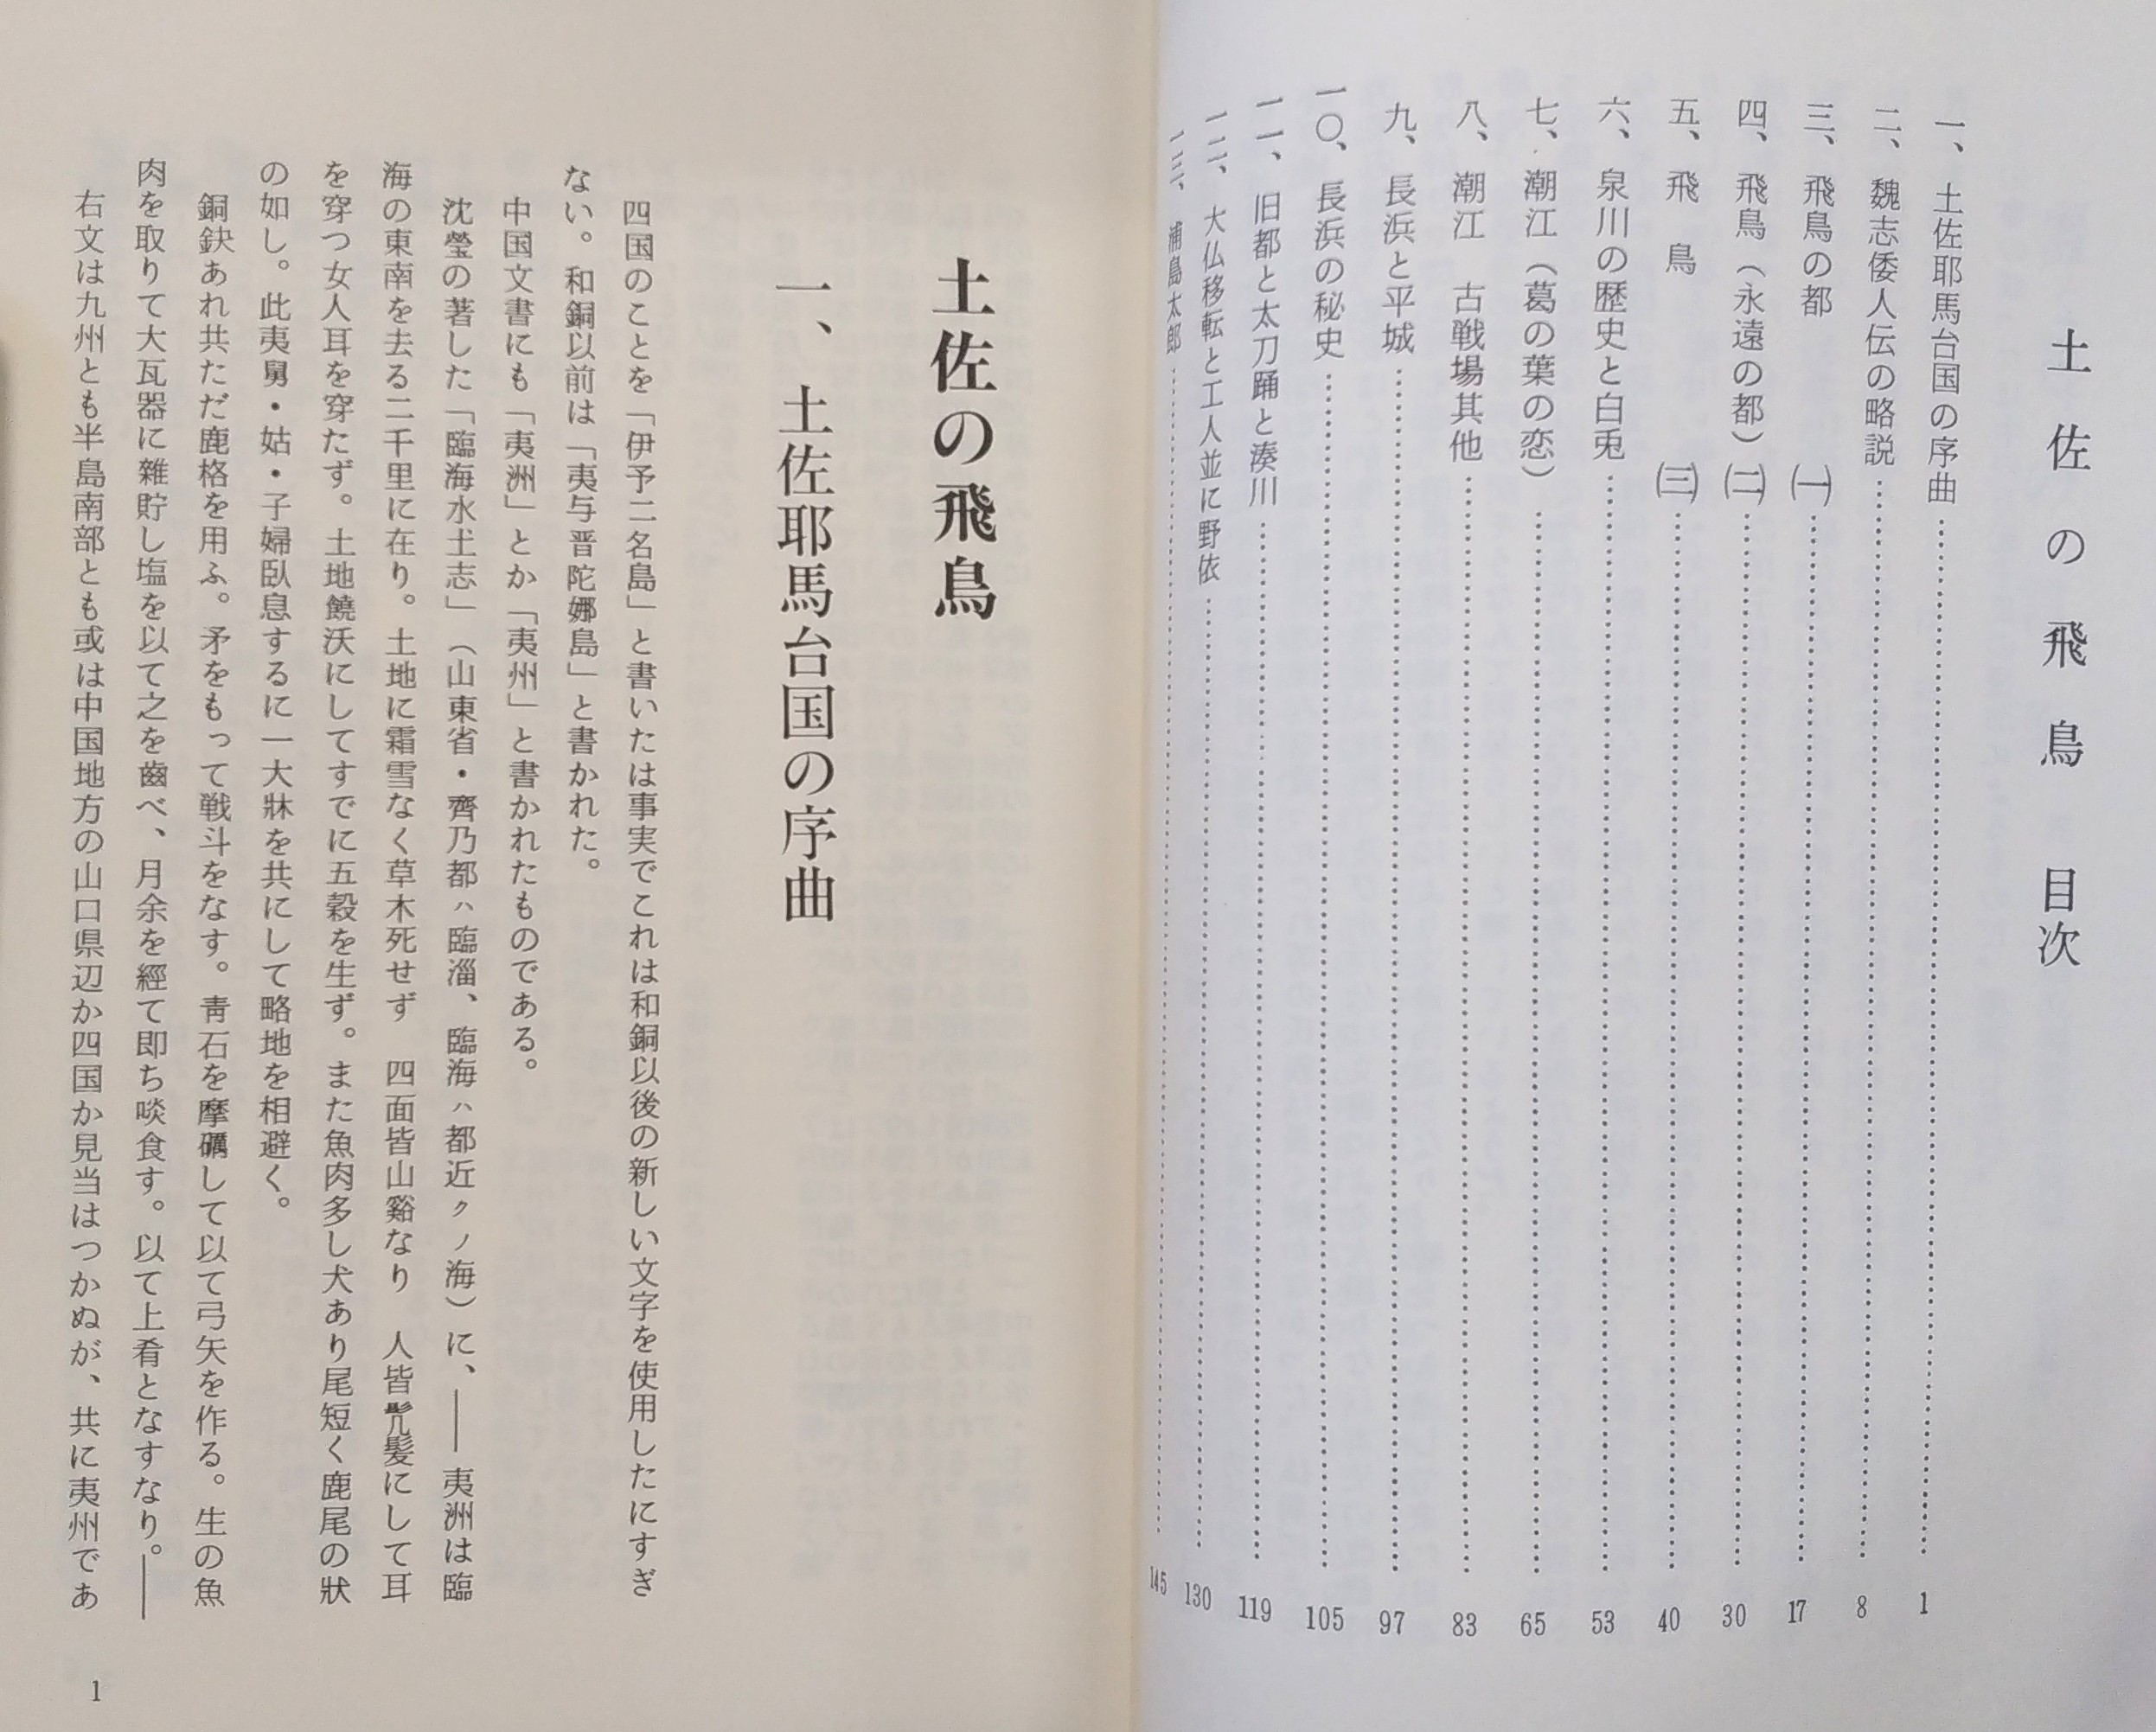 土佐の飛鳥 目次
一、土佐耶馬台国の序曲……1
二、魏志倭人伝の略説……8
三、飛鳥の都 ㈠……17
四、飛鳥（永遠の都）㈡……30
五、飛 鳥 ㈢……40
六、泉川の歴史と白兎……53
七、潮江（葛の葉の恋）……65
八、潮江 古戦場其他……83
九、長浜と平城……97
一〇、長浜の秘史……105
一一、旧都と太刀踊と湊川……119
一二、大仏移転と工人並に野依……130
一三、浦島太郎……145
土佐の飛鳥
一、土佐耶馬台国の序曲
四国のことを「伊予二名島」と書いたは事実でこれは和銅以後の新しい文字を使用したにすぎ
ない。和銅以前は「夷与晋陀娜島」と書かれた。
中国文書にも「夷洲」とか「夷州」と書かれたものである。
沈瑩の著した「臨海水土志」（山東省・齊乃都ハ臨淄、臨海ハ都近クノ海）に、――夷洲は臨
海の東南を去る二千里に在り。土地に霜雪なく草木死せず 四面皆山谿なり 人皆髠髪にして耳
を穿つ女人耳を穿たず。土地饒沃にしてすでに五穀を生ず。また魚肉多し犬あり尾短く鹿尾の狀
の如し。此夷舅・姑・子婦臥息するに一大牀を共にして略地を相避く。
銅鈌あれ共ただ鹿格を用ふ。矛をもって戦斗をなす。靑石を摩礪して以て弓矢を作る。生の魚
肉を取りて大瓦器に雜貯し塩を以て之を齒べ、月余を經て即ち啖食す。以て上肴となすなり。――
右文は九州とも半島南部とも或は中国地方の山口県辺か四国か見当はつかぬが、共に夷州であ
1